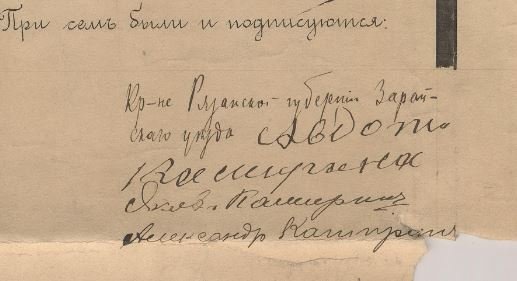 При семъ были и подписуются:
Кр-не Рязанской губерніи Зарай-
скаго уѣзда Авдоти
Каширина
Яковъ Каширинъ
Александр Каширин